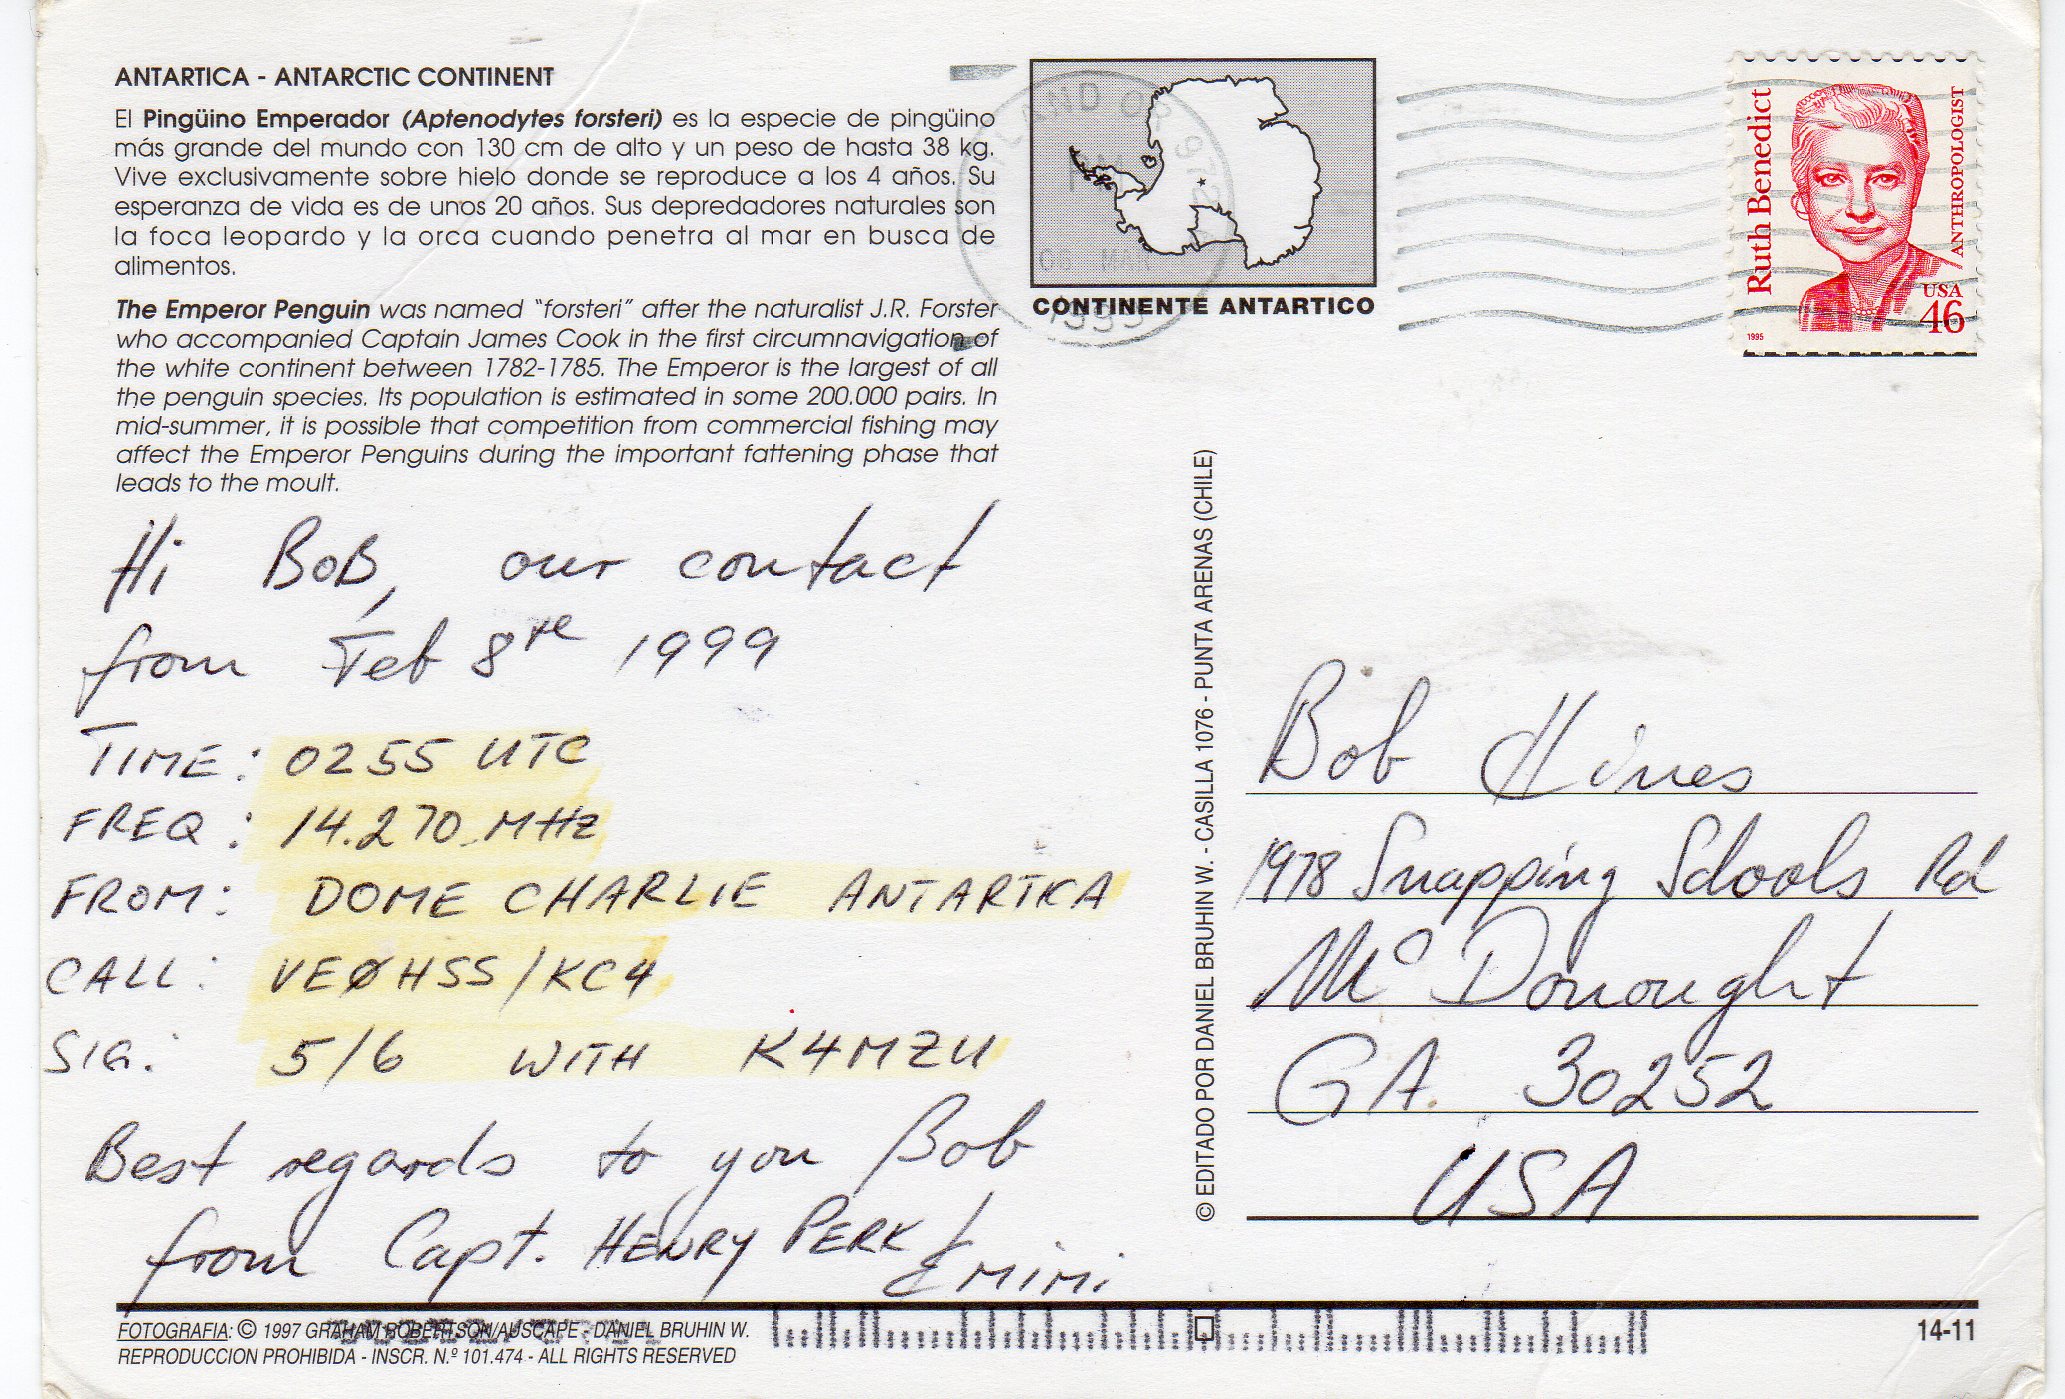 ANTARTICA - ANTARCTIC CONTINENT
El Pingüino Emperador (Aptenodytes forsteri) es la especie de pingüino
más grande del mundo con 130 cm de alto y un peso de hasta 38 kg.
Vive exclusivamente sobre hielo donde se reproduce a los 4 años. Su
esperanza de vida es de unos 20 años. Sus depredadores naturales son
la foca leopardo y la orca cuando penetra al mar en busca de
alimentos.
The Emperor Penguin was named "forsteri" after the naturalist J.R. Forster
who accompanied Captain James Cook in the first circumnavigation of
the white continent between 1782-1785. The Emperor is the largest of all
the penguin species. Its population is estimated in some 200.000 pairs. In
mid-summer, it is possible that competition from commercial fishing may
affect the Emperor Penguins during the important fattening phase that
leads to the moult.
Hi BoB, our contact
from Feb 8 1999
TIME: 0255 UTC
FREQ: 14.270 MHz
FROM: DOME CHARLIE ANTARTKA
CALL: VEØHSS/KC4
SIG: 5/6 WITH K4MZU
Best regards to you Bob
from Capt. HENRY PERK
& MIMI
FOTOGRAFIA: © 1997 GRAHAM ROBERTSON/AUSCAPE - DANIEL BRUHIN W.
REPRODUCCION PROHIBIDA - INSCR. N.º 101.474 - ALL RIGHTS RESERVED
CONTINENTE ANTARTICO
© EDITADO POR DANIEL BRUHIN W. - CASILLA 1076 - PUNTA ARENAS (CHILE)
Ruth Benedict
ANTHROPOLOGIST
USA
46
1995
Bob Hines
1978 Snapping Schools Rd
Mc Donought
GA. 30252
USA
14-11